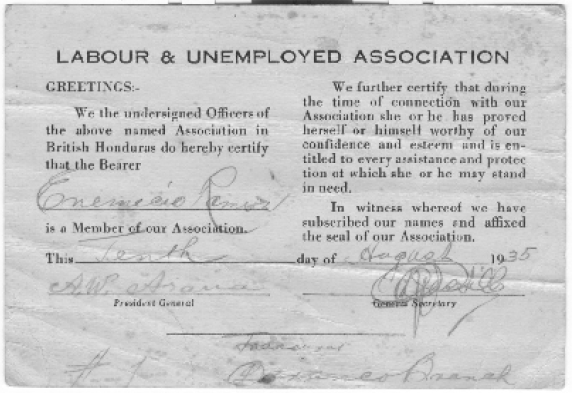 LABOUR & UNEMPLOYED ASSOCIATION
GREETINGS:-
We the undersigned Officers of
the above named Association in
British Honduras do hereby certify
that the Bearer
is a Member of our Association.
This Tenth
A.W. Arana
President General
We further certify that during
the time of connection with our
Association she or he has proved
herself or himself worthy of our
confidence and esteem and is en-
titled to every assistance and protec
tion of which she or he may stand
in need.
In witness whereof we have
subscribed our names and affixed
the seal of our Association.
day of August 1935
General Secretary
Branch